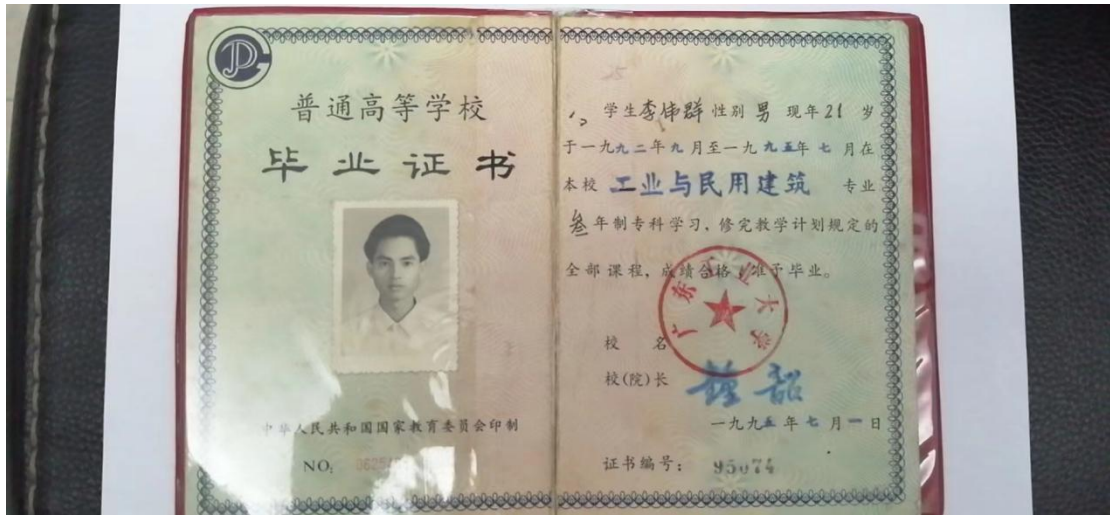 普通高等学校
毕业证书
中华人民共和国国家教育委员会印制
NO:
学生李伟群性别男现年21岁
于一九九二年九月至一九九五年七月在
本校 工业与民用建筑 专业
叁年制专科学习，修完教学计划规定的
全部课程，成绩合格，准予毕业。
广东工业大学
校名
校(院)长
一九九五年七月一日
证书编号：95074